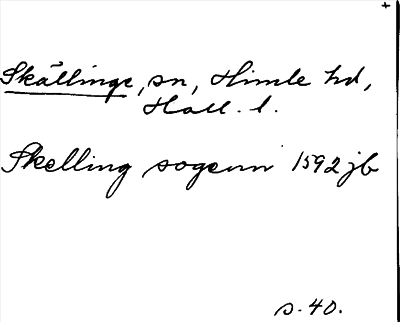 Skällinge, sn, Himle hd,
Hall. l.
Skelling sogenn 1592 jb
s. 40.